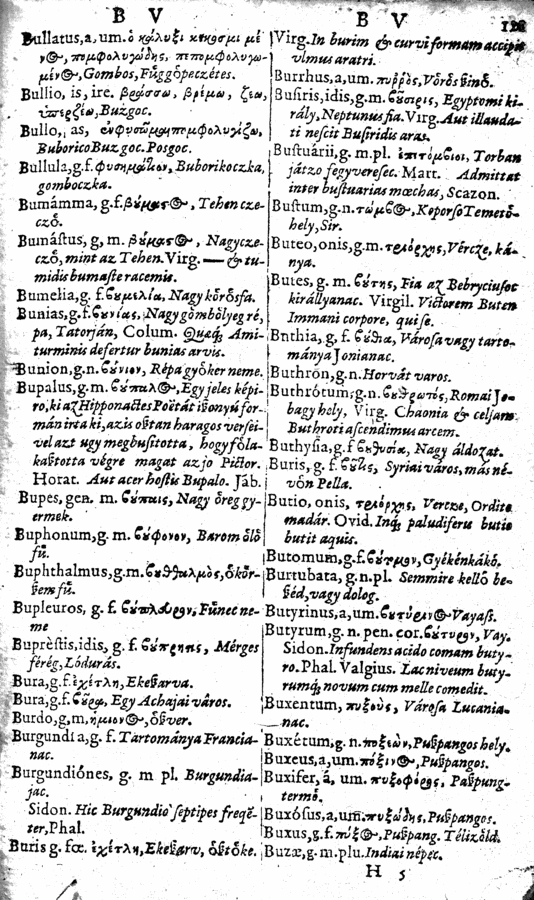 B V
Bullatus, a, um. ὁ
Gombos, Fûggôpeczétes.
Bullio, is, ire. βράσσω, βρέμω, ζέω,
Buzgoc.
Bullo, as,
Buborico Buzgoc. Posgoc.
Bullula, g. f. Buborikoczka,
gomboczka.
Bumámma, g. f. Tehen cze-
czô.
Bumástus, g, m. Nagycze-
czô, mint az Tehen. Virg. — & tu-
midis bumaste racemis.
Bumelia, g. f. Nagy kôrôsfa.
Bunias, g. f. Nagy gômbôlyeg ré-
pa, Tatorján, Colum. Quæq; Ami-
turminis defertur bunias arvis.
Bunion, g. n. Répa gyôker neme.
Bupalus, g. m. Egy jeles képi-
ro, ki az Hipponactes Poëtát
mán irta ki, az is oßtan haragos versei-
vel azt ugy megbusitotta, hogy fôla-
kaßtotta végre magat az jo Pictor.
Horat. Aut acer hostis Bupalo. Jáb.
Bupes, gen. m. Nagy ôreg gy-
ermek.
Buphonum, g. m. Barom ôlô
fû.
Buphthalmus, g. m. ôkôr-
ßem fû.
Bupleuros, g. f. Fûnec ne-
me
Buprèstis, idis, g. f. Mérges
féreg, Lódurás.
Bura, g. f. ἐχέτλη, Ekeßarva.
Bura, g. f. Egy Achajai város.
Burdo, g, m, ôßver.
Burgundia, g. f. Tartománya Francia-
nac.
Burgundiónes, g. m pl. Burgundia-
jac.
Sidon. Hic Burgundio septipes freqē-
ter, Phal.
Buris g. fœ. ἐχέτλη, Ekeßarv, ôßtôke.
B V
Virg. In burim & curvi formam accipit
ulmus aratri.
Burrhus, a, um. πυῤῥὸς, Vôrôs
Busiris, idis, g. m. Egyptomi ki-
rály, Neptunus fia. Virg. Aut illauda-
ti nescit Busiridis aras.
Bustuárii, g. m. pl. Torban
játzo fegyveresec. Mart. Admittat
inter bustuarias mœchas, Scazon.
Bustum, g. n. Koporso Temetô-
hely, Sir.
Buteo, onis, g. m. τριόρχης, Vércze, ká-
nya.
Butes, g. m. Fia az Bebryciusoc
királlyanac. Virgil. Victorem Buten
Immani corpore, qui se.
Buthia, g, f. Városa vagy tarto-
mánya Jonianac.
Buthron, g. n. Horvát varos.
Buthrótum, g. n. Romai Jo-
bagy hely, Virg. Chaonia & celsam
Buthroti ascendimus arcem.
Buthysia, g. f Nagy áldozat.
Buris, g. f. Syriai város, más né-
vôn Pella.
Butio, onis, τριόρχης, Vercze, Ordito
madár. Ovid. Inq; paludiferu butio
butit aquis.
Butomum, g. f. Gyékénkákó.
Burtubata, g. n. pl. Semmire kellô be-
ßéd, vagy dolog.
Butyrinus, a, um. Vayas.
Butyrum, g. n. pen. cor. Vay.
Sidon. Infundens acido comam buty-
ro. Phal. Valgius. Lac niveum buty-
rumq; novum cum melle comedit.
Buxentum, πυξοῦς, Városa Lucania-
nac.
Buxétum, g. n. Pußpangos hely.
Buxeus, a, um. Pußpangos.
Buxifer, á, um. πυξοφόρος, Paßpung-
termô.
Buxósus, a, um. πυξώδης, Pußpangos.
Buxus, g. f. Pußpang. Télizôld.
Buzæ, g. m. plu. Indiai népec.
H 5